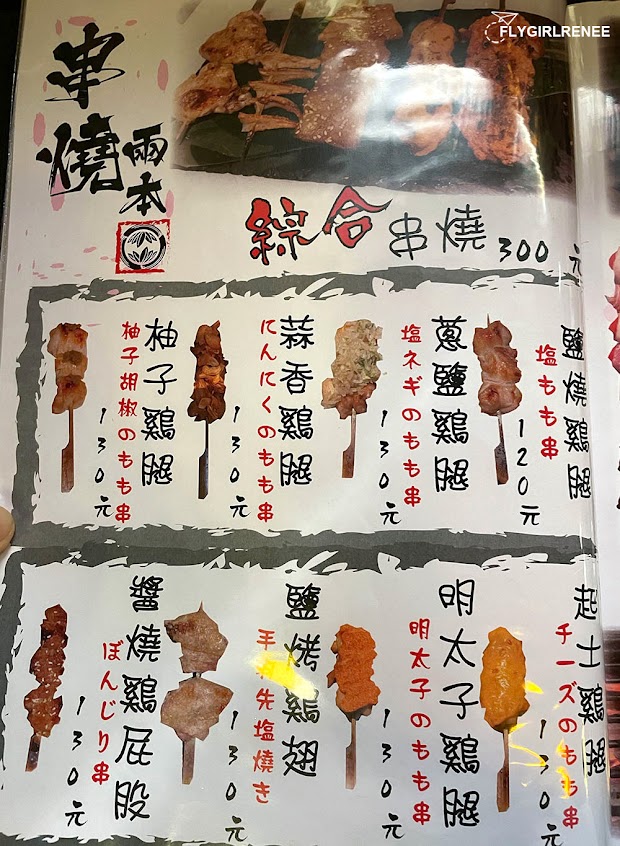 FLYGIRLRENEE
串燒
雨本
綜合串燒 300元
鹽燒雞腿
塩もも串
120元
蔥鹽雞腿
塩ネギのもも串
130元
蒜香雞腿
にんにくのもも串
130元
柚子雞腿
柚子胡椒のもも串
130元
起士雞腿
チーズのもも串
130元
明太子雞腿
明太子のもも串
130元
鹽烤雞翅
先塩焼き
130元
醬燒雞屁股
ぼんじり串
130元